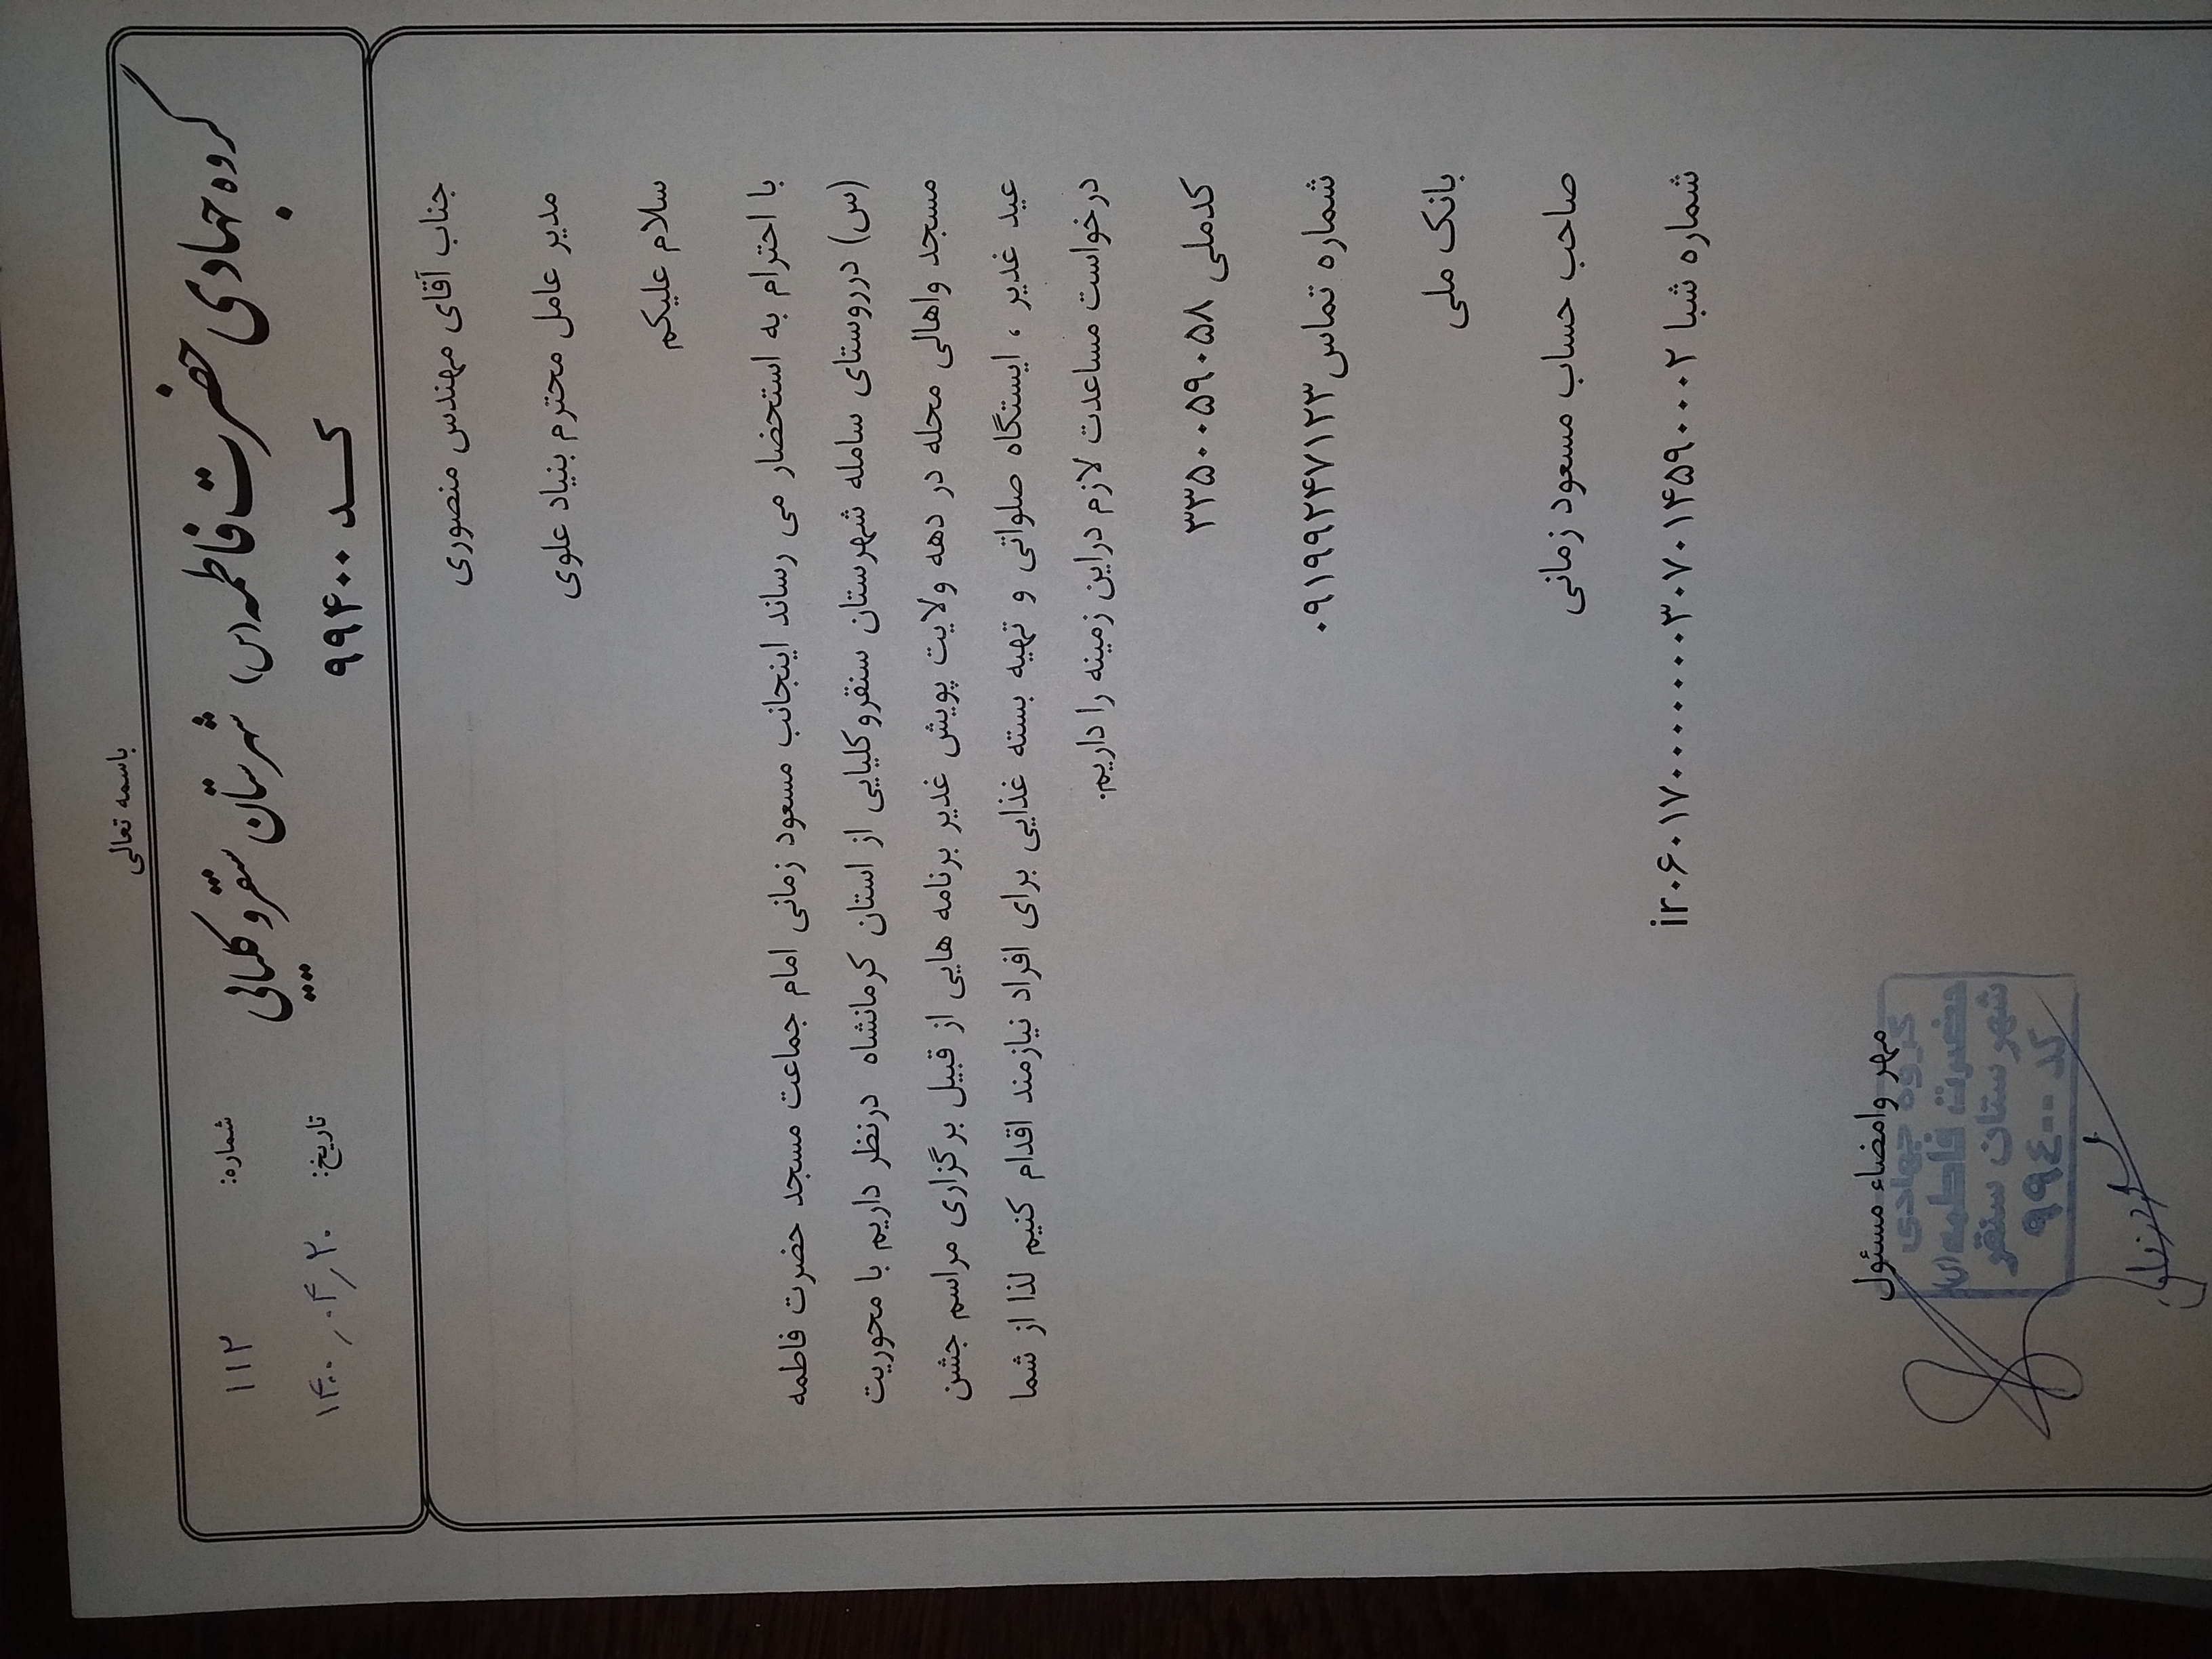 باسمه تعالی
گروه جهادی حضرت فاطمه (س) شهرستان سنقر و کلیایی
کد ۹۹۴۰۰
شماره: ۱۱۲
تاریخ: ۱۴۰۰/۰۴/۲۰
جناب آقای مهندس منصوری
مدیر عامل محترم بنیاد علوی
سلام علیکم
با احترام به استحضار می رساند اینجانب مسعود زمانی امام جماعت مسجد حضرت فاطمه
(س) درروستای سامله شهرستان سنقروکلیایی از استان کرمانشاه درنظر داریم با محوریت
مسجد واهالی محله در دهه ولایت پویش غدیر برنامه هایی از قبیل برگزاری مراسم جشن
عید غدیر ، ایستگاه صلواتی و تهیه بسته غذایی برای افراد نیازمند اقدام کنیم لذا از شما
درخواست مساعدت لازم دراین زمینه را داریم.
کدملی ۳۳۵۰۰۵۹۰۵۸
شماره تماس ۰۹۱۹۹۲۴۷۱۲۳
بانک ملی
صاحب حساب مسعود زمانی
شماره شبا ir۰۶۰۱۷۰۰۰۰۰۰۰۳۰۷۰۱۴۵۹۰۰۰۲
مهر وامضاء مسئول
گروه جهادی
حضرت فاطمه (س)
شهرستان سنقر
کد ۹۹۴۰۰